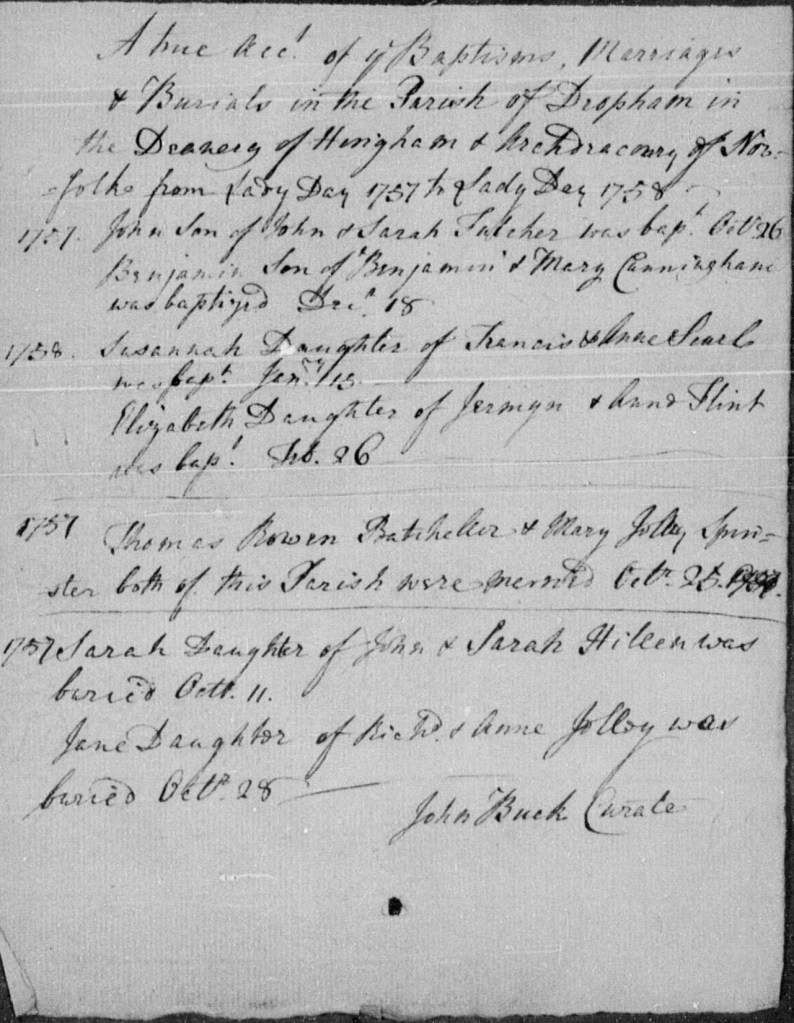 A true Acct. of ye Baptisms, Marriages
& Burials in the Parish of Dropham in
the Deanery of Hingham & Archdeaconry of Nor-
-folk from Lady Day 1757 to Lady Day 1758
1757. John Son of John & Sarah Futcher was bapt. Octr 26
Benjamin Son of Benjamin & Mary Cunningham
was baptized Decr. 18
1758. Susannah Daughter of Francis & Anne Searl
was bapt. Janry 15
Elizabeth Daughter of Jermyn & Anne Flint
was bapt. Feb. 26
1757 Thomas Rowen Batcheller & Mary Jolley Spin-
ster both of this Parish were married Octr. 25. 1757.
1757 Sarah Daughter of John & Sarah Hillen was
buried Octr. 11.
Jane Daughter of Richd. & Anne Jolley was
buried Octr. 28
John Buck Curate